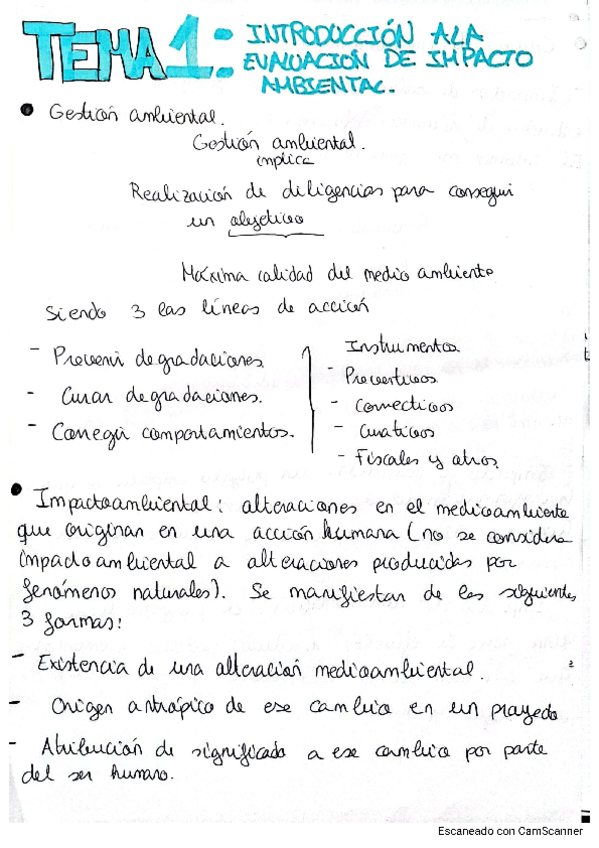 TEMA 1: INTRODUCCIÓN A LA
EVALUACIÓN DE IMPACTO
AMBIENTAL.
Gestión ambiental.
Gestión ambiental.
implica
Realización de diligencias para conseguir
un objetivo
Máxima calidad del medio ambiente
Siendo 3 las líneas de acción
- Prevenir degradaciones.
- Curar degradaciones.
- Corregir comportamientos.
Instrumentos.
- Preventivos.
- Correctivos
- Curativos
- Fiscales y otros.
Impacto ambiental: alteraciones en el medioambiente
que originan en una acción humana (no se considera
impacto ambiental a alteraciones producidas por
fenómenos naturales). Se manifiestan de las siguientes
3 formas:
- Existencia de una alteración medioambiental.
- Origen antrópico de ese cambio en un proyecto
- Atribución de significado a ese cambio por parte
del ser humano.
Escaneado con CamScanner